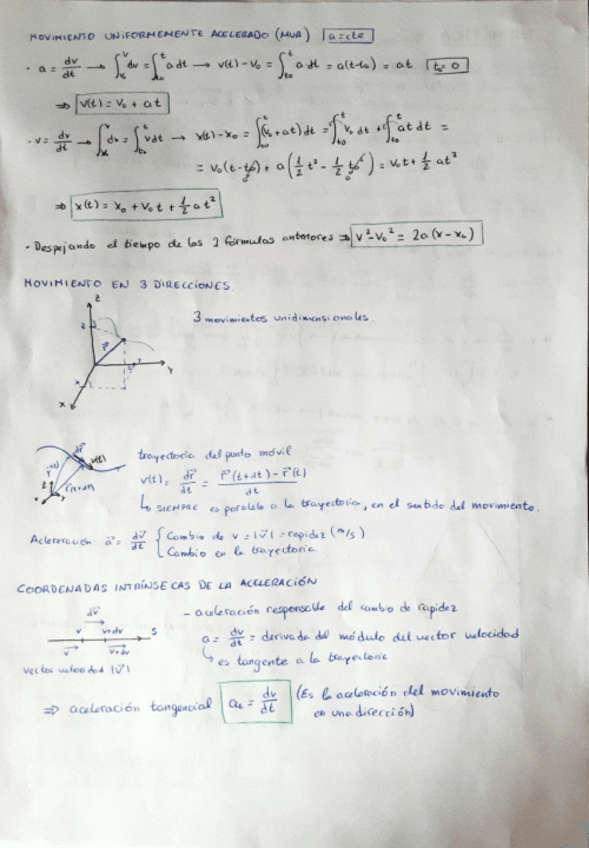 MOVIMIENTO UNIFORMEMENTE ACELERADO (MUA) a=cte
· a = dv/dt → ∫ᵥ₀ᵛ dv = ∫ₜ₀ᵗ a dt → v(t) - v₀ = ∫ₜ₀ᵗ a·dt = a(t-t₀) = at t₀ = 0
⇒ v(t) = v₀ + at
· v = dx/dt → ∫ₓ₀ˣ dx = ∫ₜ₀ᵗ v dt → x(t) - x₀ = ∫ₜ₀ᵗ (v₀ + at) dt = ∫ₜ₀ᵗ v₀ dt + ∫ₜ₀ᵗ at dt =
= v₀(t-t₀) + a(1/2 t² - 1/2 t₀²) = v₀t + 1/2 at²
⇒ x(t) = x₀ + v₀t + 1/2 at²
· Despejando el tiempo de las 2 fórmulas anteriores ⇒ v² - v₀² = 2a(x - x₀)
MOVIMIENTO EN 3 DIRECCIONES
3 movimientos unidimensionales.
z
z
r⃗
y
y
x
x
dr⃗
v(t)
r⃗(t)
r⃗(t+dt)
z
x
y
trayectoria del punto móvil
v(t) = dr⃗/dt = (r⃗(t+dt) - r⃗(t))/dt
↳ SIEMPRE es paralelo a la trayectoria, en el sentido del movimiento.
Aceleración: a⃗ = dv⃗/dt { Cambio de v = |v⃗| = rapidez (m/s)
Cambio en la trayectoria
COORDENADAS INTRÍNSECAS DE LA ACELERACIÓN
dv⃗
v v+dv S
v⃗ v+dv
vector velocidad |v⃗|
- aceleración responsable del cambio de rapidez
a = dv/dt = derivada del módulo del vector velocidad
↳ es tangente a la trayectoria
⇒ aceleración tangencial aₜ = dv/dt (Es la aceleración del movimiento
en una dirección)